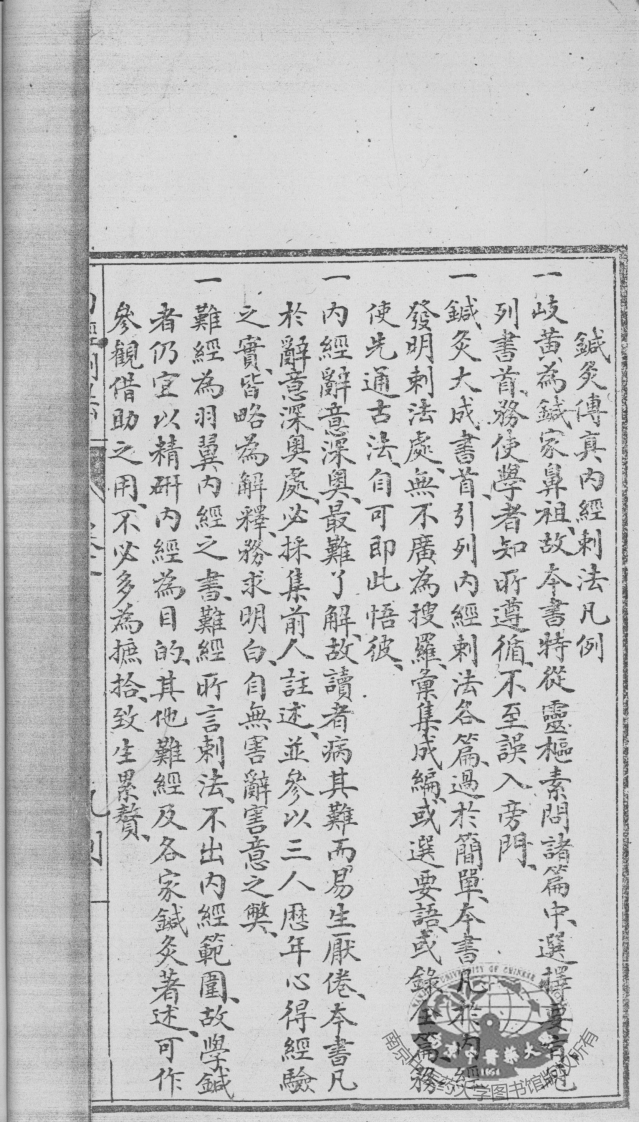 鍼灸傳真內經刺法凡例
一岐黃為鍼家鼻祖、故本書特從靈樞素問諸篇中、選擇要言
列書首、務使學者知所遵循、不至誤入旁門、
一鍼灸大成書首、引列內經刺法各篇、過於簡單、本書凡於內經
發明刺法處、無不廣為搜羅、彙集成編、或選要語、或錄全篇、務
使先通古法、自可即此悟彼、
一內經辭意深奧、最難了解、故讀者病其難而易生厭倦、本書凡
於辭意深奧處、必採集前人註述、並參以三人歷年心得經驗
之實、皆略為解釋、務求明白、自無害辭害意之獘、
一難經為羽翼內經之書、難經所言刺法、不出內經範圍、故學鍼
者仍宜以精研內經為目的、其他難經及各家鍼灸著述、可作
參觀借助之用、不必多為摭拾、致生累贅、
內經刺法
凡例
南京中醫藥大學
1954
南京中医药大学图书馆版权所有